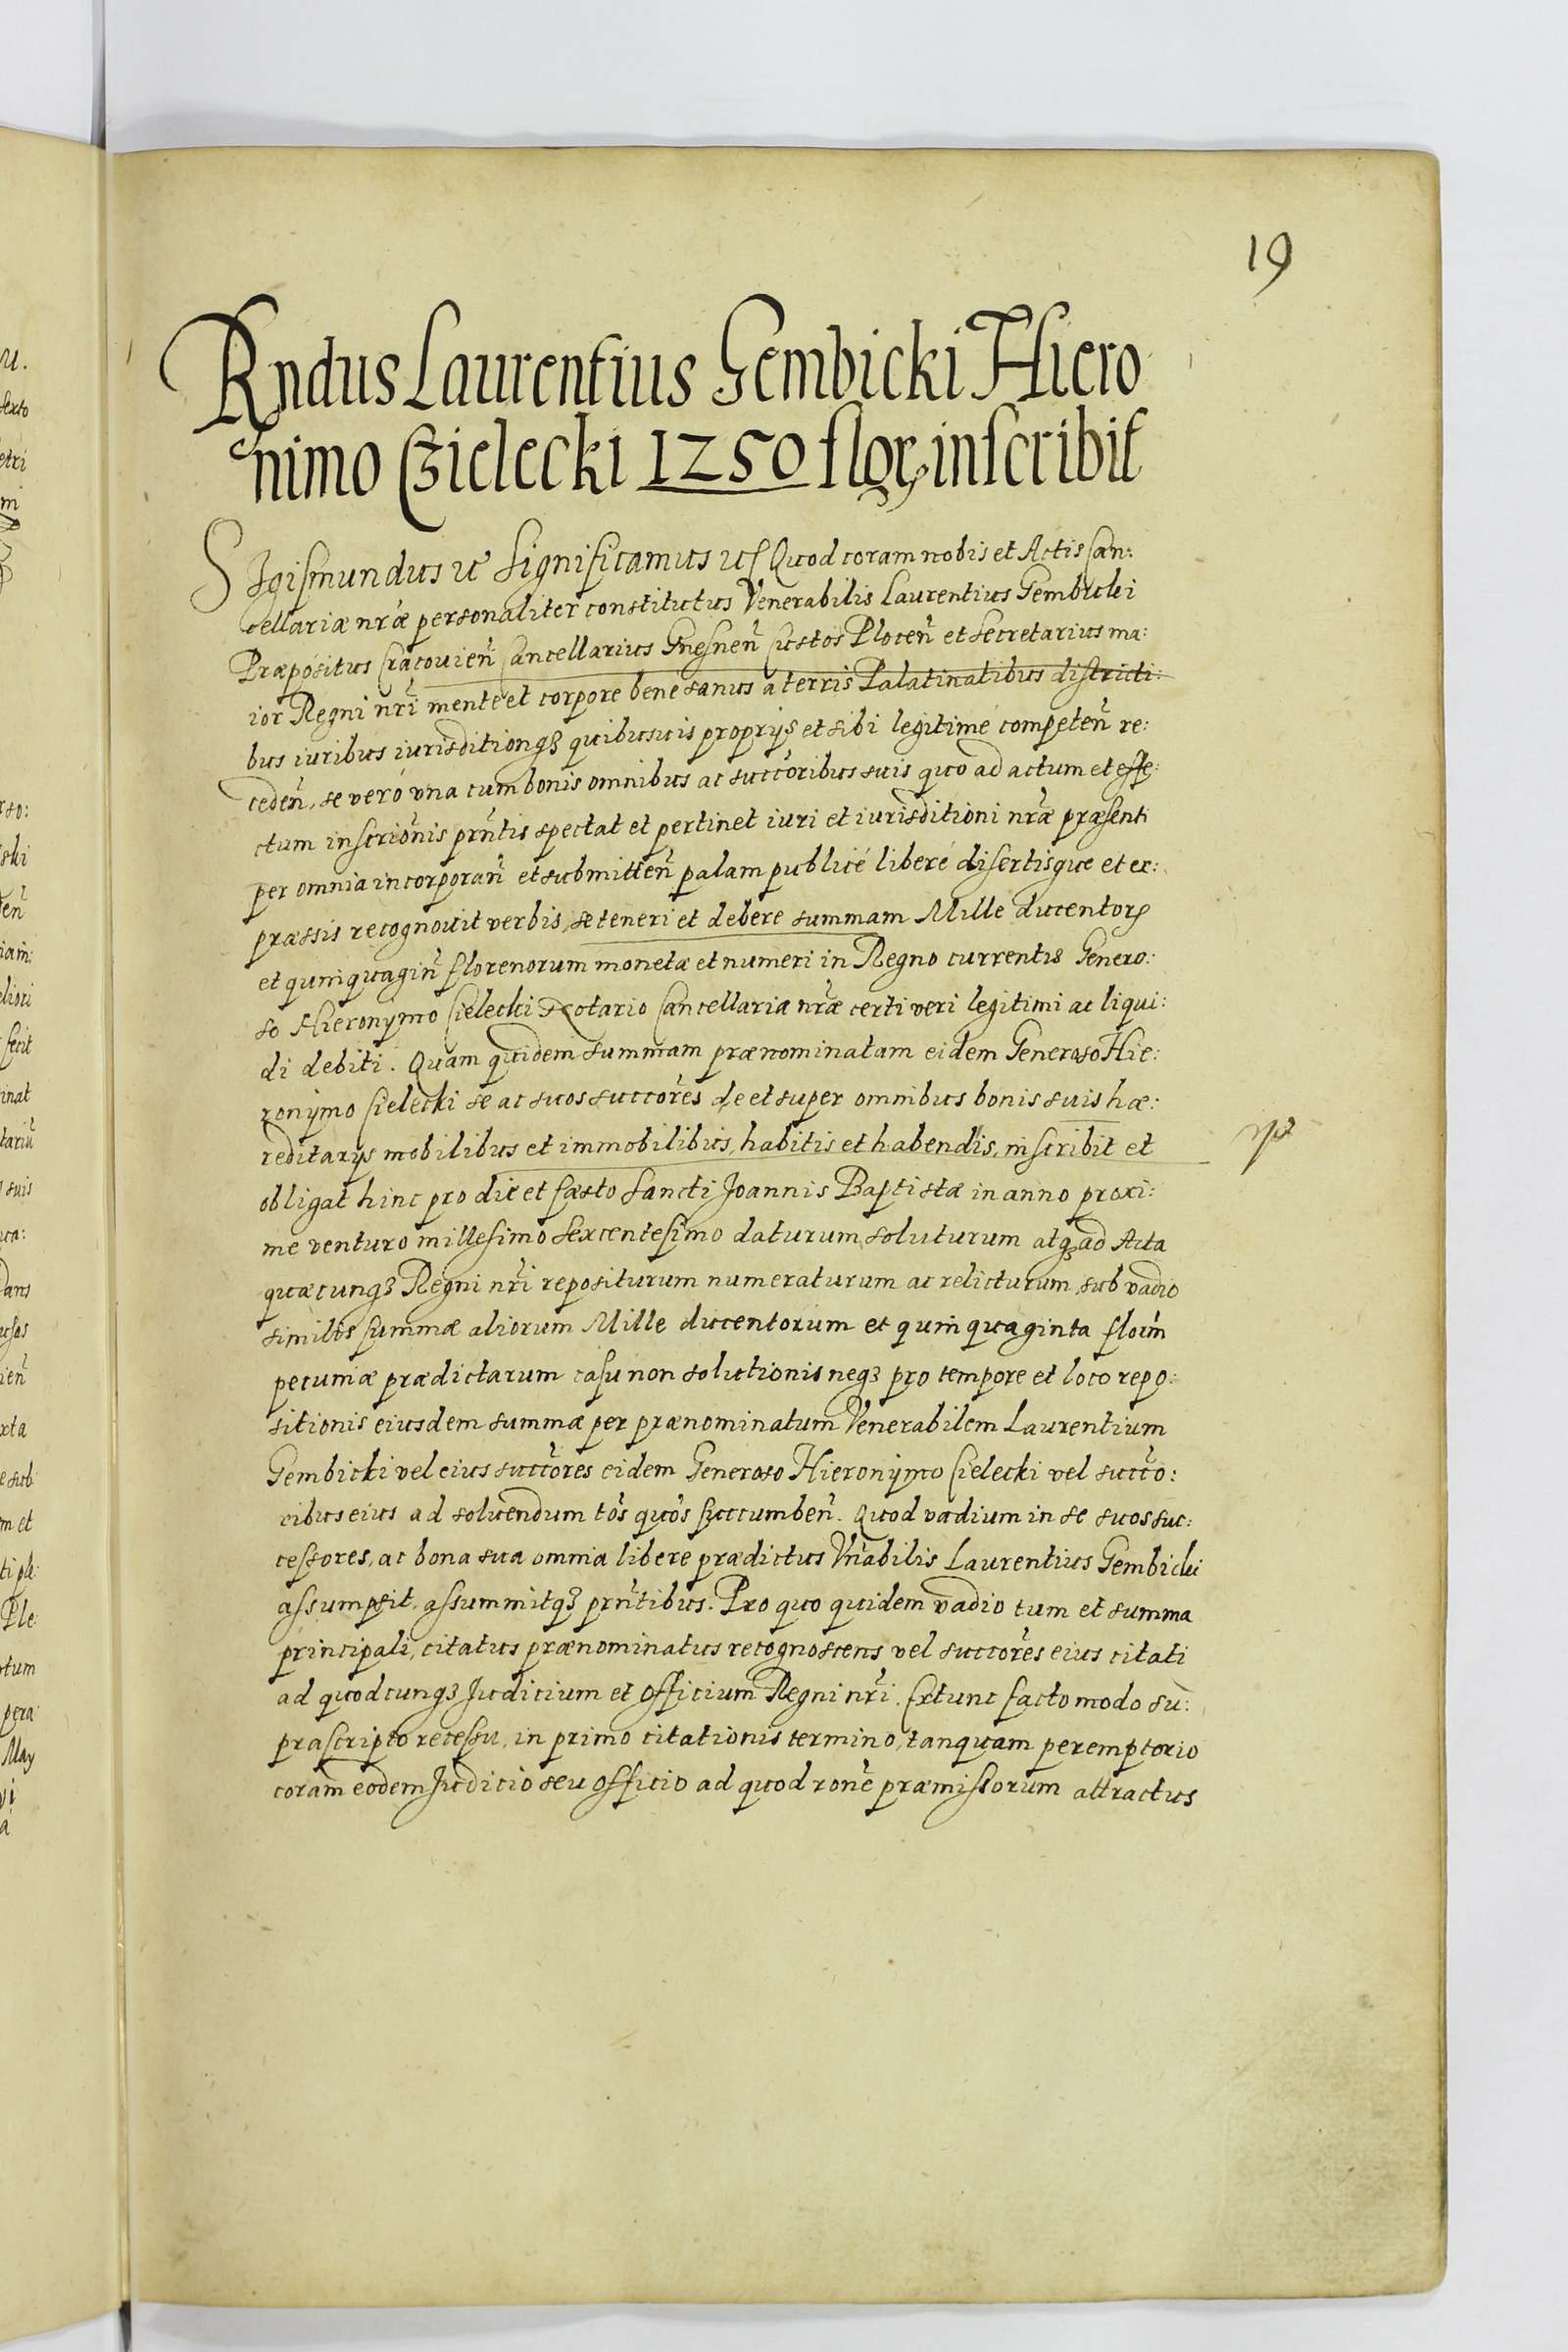 19
Rndus Laurentius Gembicki Hiero
nimo Czielecki 1250 flor inscribit
Sigismundus etc Significamus etc Quod coram nobis et Actis Can:
cellariæ nræ personaliter constitutus Venerabilis Laurentius Gembicki
Præpositus Cracovien Cancellarius Gnesnen Custos Plocen et Secretarius ma:
ior Regni nri mente et corpore bene sanus a terris Palatinatibus districti:
bus iuribus iurisditionq3 quibusuis proprijs et sibi legitimé competen re:
ceden, se veró vna cum bonis omnibus ac succoribus suis quo ad actum et effe:
ctum inscrionis prntis spectat et pertinet iuri et iurisditioni nræ præsenti
per omnia incorporan et submitten palam publicé liberé disertisque et ex:
præssis recognouit verbis, se teneri et debere summam Mille ducentor
et quinquagin florenorum monetæ et numeri in Regno currentis Genero:
so Hieronymo Cielecki Notario Cancellariæ nræ certi veri legitimi ac liqui:
di debiti. Quam quidem summam prænominatam eidem Generoso Hie:
ronymo Cielecki se ac suos succores de et super omnibus bonis suis hæ:
reditarijs mobilibus et immobilibus, habitis et habendis, inscribit et
obligat hinc pro die et fæsto Sancti Joannis Baptistæ in anno proxi:
me venturo millesimo sexcentesimo daturum soluturum atq3 ad Acta
quæcunq3 Regni nri repositurum numeraturum ac relicturum, sub vadio
similis summæ aliorum Mille ducentorum et quinquaginta floren
pecuniæ prædictarum casu non solutionis neq3 pro tempore et loco repo:
sitionis eiusdem summæ per prænominatum Venerabilem Laurentium
Gembicki vel eius succores eidem Generoso Hieronymo Cielecki vel succo:
ribus eius ad soluendum tos quos succumben. Quod vadium in se suos suc:
cessores, ac bona sua omnia libere prædictus Vnabilis Laurentius Gembicki
assumpsit, assummitq3 prntibus. Pro quo quidem vadio tum et summa
principali, citatus prænominatus recognoscens vel succores eius citati
ad quodcunq3 Judicium et Officium Regni nri. Extunc facto modo su:
prascripto recessu, in primo citationis termino, tanquam peremptorio
coram eodem Judicio seu Officio ad quod rone præmissorum attractus